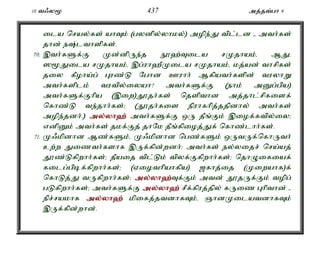 10 வஃலமூ 437 அத்தவ்பா 9
டைய செயல்கள் யாவும் (பலனில்லாமல்) அழிந்து விட்டன - அவர்கள்
தான் நஷ்டவாளிகள்.
70. இவர்களுக்கு முன்னிருந்த நூஹ்வுடைய சமுதாயம், ஆது,
ஸமூதுடைய சமுதாயம், இப்ராஹீமுடைய சமுதாயம், மத்யன் வாசிகள்
தலை கீழாய்ப் புரண்டு போன ஊரார் ஆகியவர்களின் வரலாறு
அவர்களிடம் வரவில்லையா? அவர்களுக்கு (நாம் அனுப்பிய)
அவர்களுக்குரிய (இறை)தூதர்கள் தெளிவான அத்தாட்சிகளைக்
கொண்டு வந்தார்கள்; (தூதர்களை நிராகரித்ததினால் அவர்கள்
அழிந்தனர்.) அல்லாஹ் அவர்களுக்கு ஒரு தீங்கும் இழைக்கவில்லை;
எனினும் அவர்கள் தமக்குத் தாமே தீங்கிழைத்துக் கொண்டார்கள்.
71. முஃமினான ஆண்களும், முஃமினான பெண்களும் ஒருவருக்கொருவர்
உற்ற துணைவர்களாக இருக்கின்றனர்; அவர்கள் நல்லதைச் செய்யத்
தூண்டுகிறார்கள்; தீயதை விட்டும் விலக்குகிறார்கள்; தொழுகையைக்
கடைப்பிடிக்கிறார்கள்; (ஏழைவரியாகிய) ஜகாத்தை (முறையாக)க்
கொடுத்து வருகிறார்கள்; அல்லாஹ்வுக்கும் அவன் தூதருக்கும் வழிப்
படுகிறார்கள்; அவர்களுக்கு அல்லாஹ் சீக்கிரத்தில் கருணை புரிவான் -
நிச்சயமாக அல்லாஹ் மிகைத்தவனாகவும், ஞானமுடையவனாகவும்
இருக்கின்றான்.